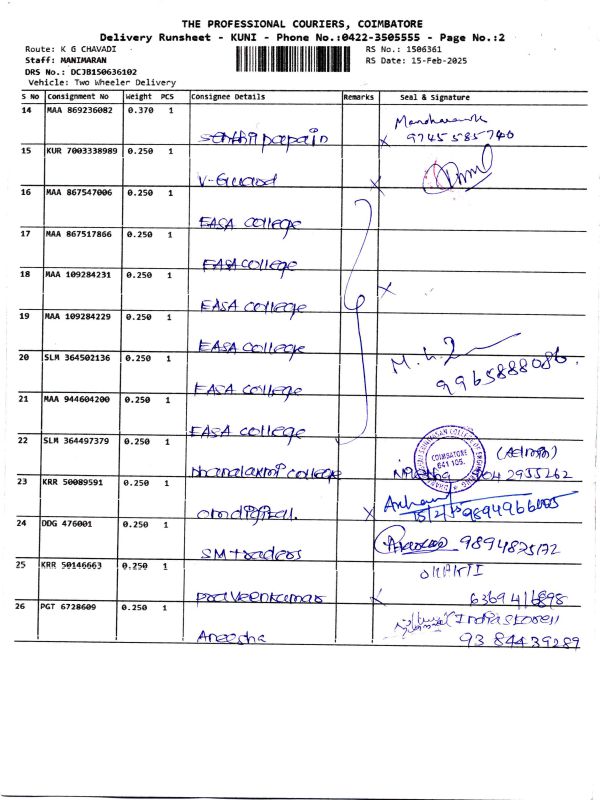 THE PROFESSIONAL COURIERS, COIMBATORE
Delivery Runsheet - KUNI - Phone No.:0422-3505555 - Page No.:2
Route: K G CHAVADI RS No.: 1506361
Staff: MANIMARAN RS Date: 15-Feb-2025
DRS No.: DCJB150636102
Vehicle: Two Wheeler Delivery
S No Consignment No Weight PCS Consignee Details Remarks Seal & Signature
14 MAA 869236082 0.370 1
9745585740
15 KUR 7003338989 0.250 1
V-Guard
16 MAA 867547006 0.250 1
EASA college
17 MAA 867517866 0.250 1
EASA college
18 MAA 109284231 0.250 1
EASA college
19 MAA 109284229 0.250 1
EASA college
20 SLM 364502136 0.250 1
EASA college 9965888086.
21 MAA 944604200 0.250 1
EASA college
22 SLM 364497379 0.250 1
COIMBATORE
641 105.
Dhanalaxmi college
23 KRR 50089591 0.250 1
omdigital.
24 DDG 476001 0.250 1
SM traders 9894825172
25 KRR 50146663 0.250 1
praveenkumar 6369416898
26 PGT 6728609 0.250 1
Areesha 9384439289